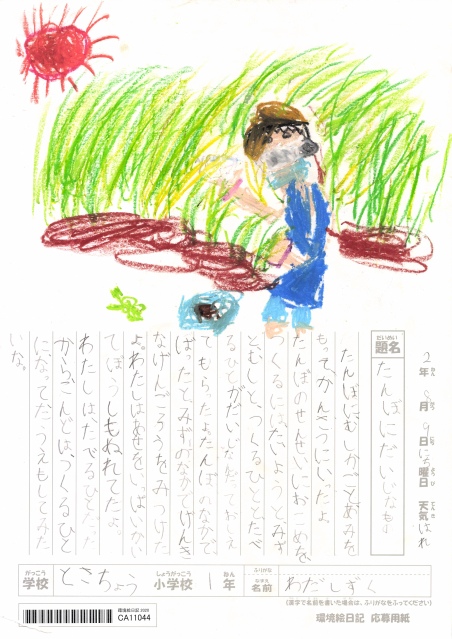 2年 8月 9日 にち曜日 天気 はれ
だいめい
題名 たんぼにだいじなもの
たんぼにむしかごとあみを
もってかんさつにいったよ。
たんぼのせんせいにおこめを
つくるには、たいようと、みず
と、むしと、つくるひととたべ
るひとがだいじなんだっておしえ
てもらったよ。たんぼのなかで
ばったとみずのなかでげんき
なげんごろうをみつけた
よ。わたしはあせをいっぱいかい
てぼうしもぬれてたよ。
わたしは、たべるひとだった
からこんどは、つくるひと
になってたうえもしてみた
いな。
がっこう しょうがっこう ねん ふりがな
学校 ときちょう 小学校 1年 名前 わだしずく
(漢字で名前を書いた場合は、ふりがなをふってください)
環境絵日記 2020
CA11044
環境絵日記 応募用紙